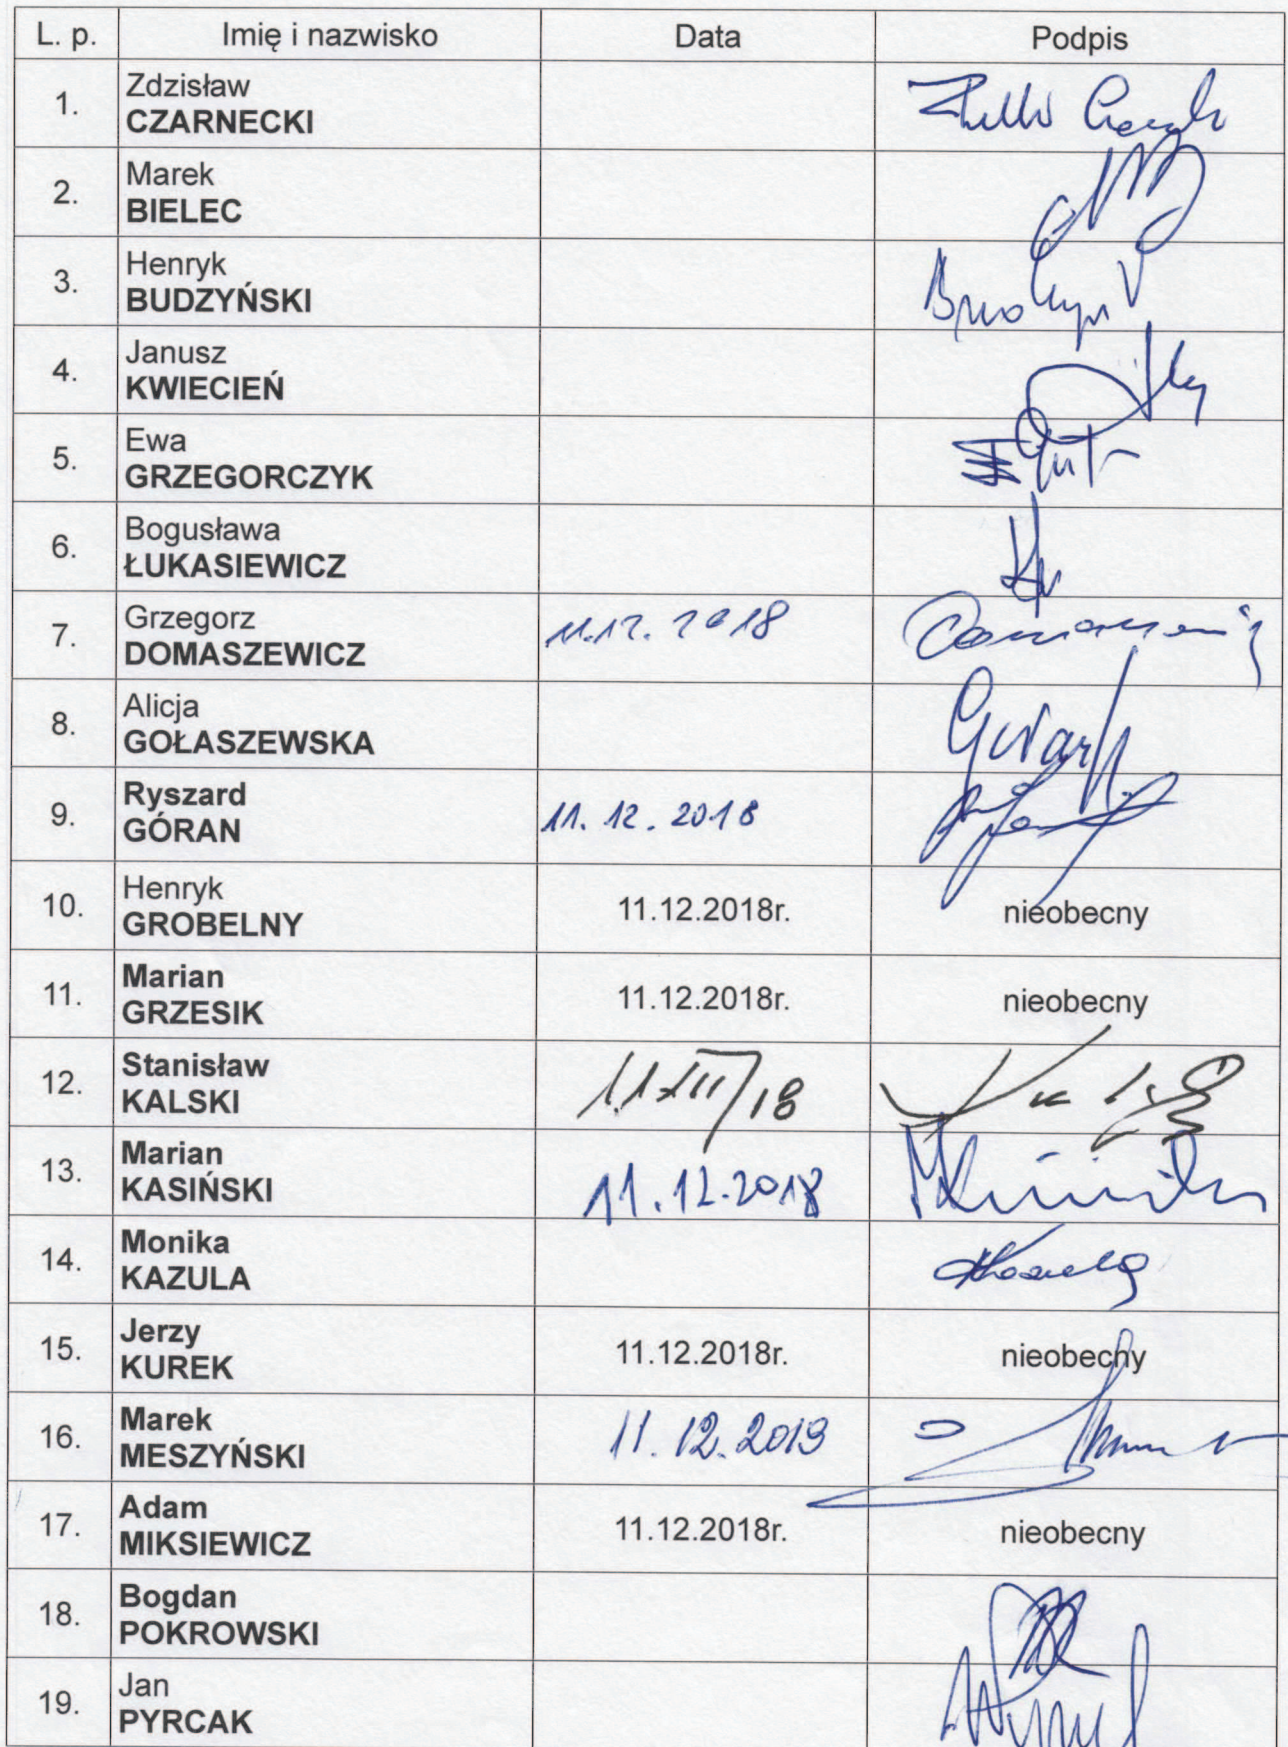 L. p. Imię i nazwisko Data Podpis
1. Zdzisław
CZARNECKI
2. Marek
BIELEC
3. Henryk
BUDZYŃSKI
4. Janusz
KWIECIEŃ
5. Ewa
GRZEGORCZYK
6. Bogusława
ŁUKASIEWICZ
7. Grzegorz
DOMASZEWICZ 11.12.2018
8. Alicja
GOŁASZEWSKA
9. Ryszard
GÓRAN 11.12.2018
10. Henryk
GROBELNY 11.12.2018r. nieobecny
11. Marian
GRZESIK 11.12.2018r. nieobecny
12. Stanisław
KALSKI 11 XII/18
13. Marian
KASIŃSKI 11.12.2018
14. Monika
KAZULA
15. Jerzy
KUREK 11.12.2018r. nieobecny
16. Marek
MESZYŃSKI 11.12.2018
17. Adam
MIKSIEWICZ 11.12.2018r. nieobecny
18. Bogdan
POKROWSKI
19. Jan
PYRCAK